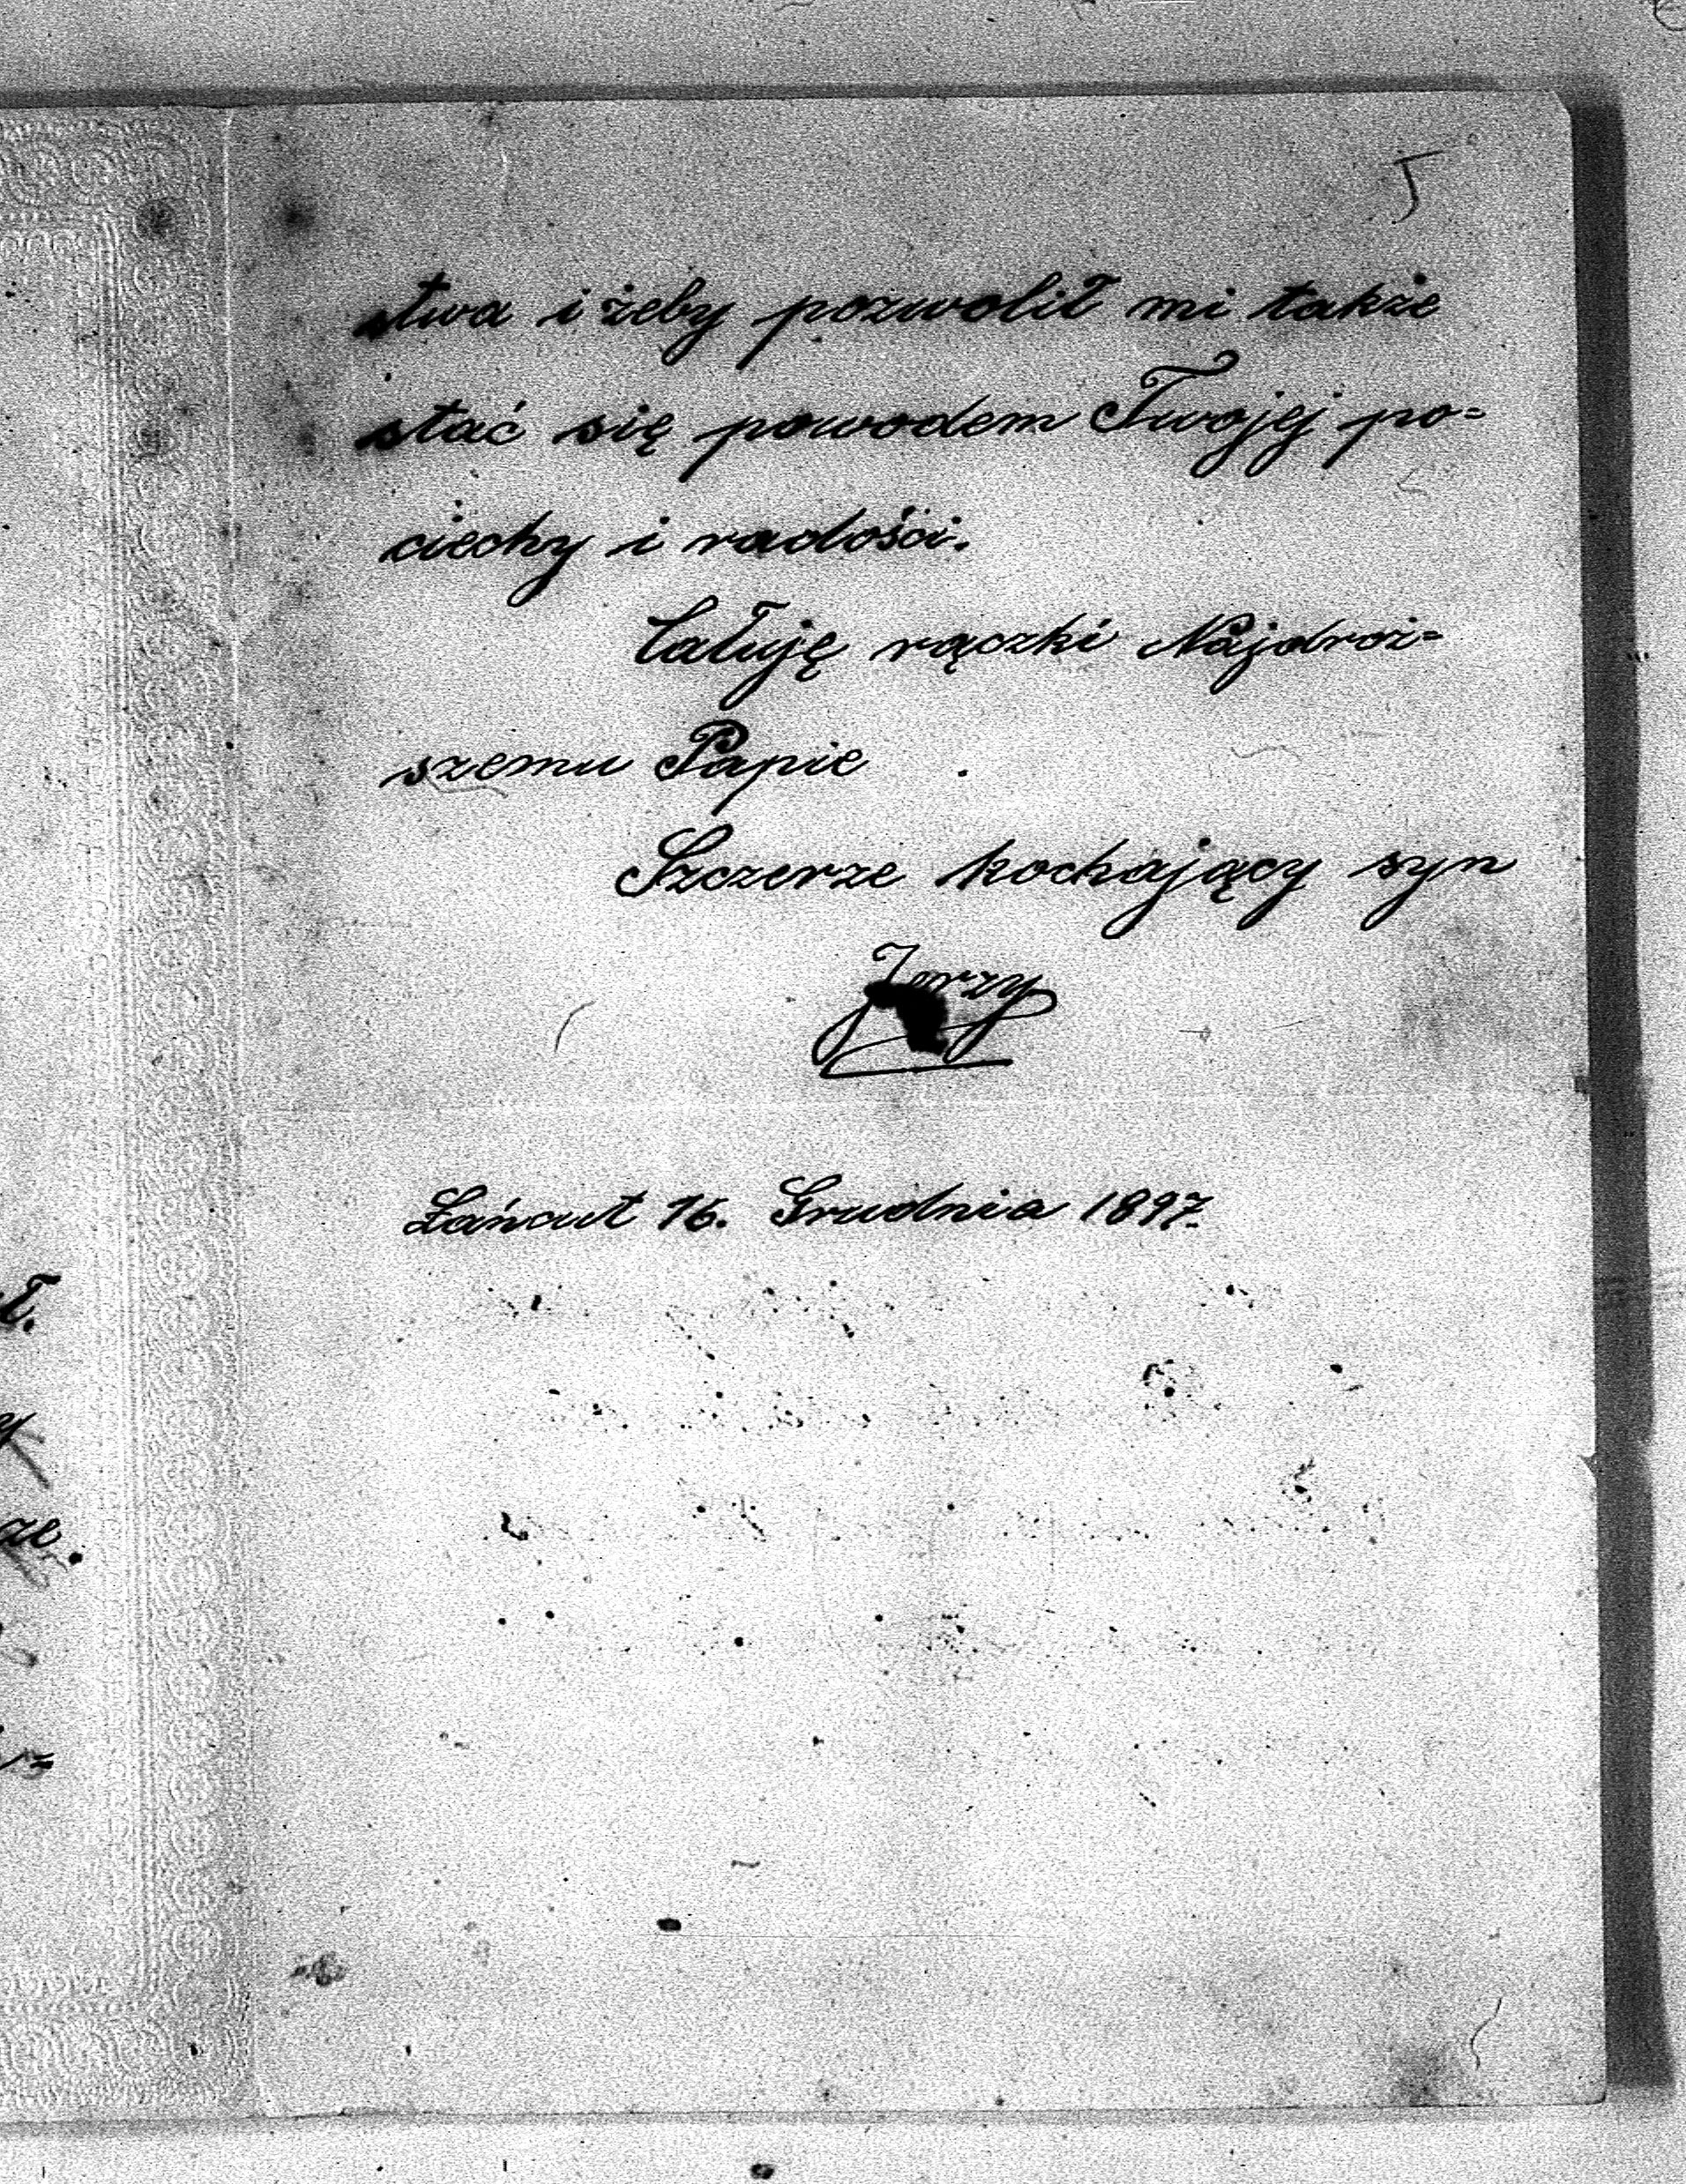 5
stwa i żeby pozwolił mi także
stać się powodem Twojej po=
ciechy i radości.
Całuję rączki Najdroż=
szemu Papie
Szczerze kochający syn
Jerzy
Łańcut 16. Grudnia 1897.